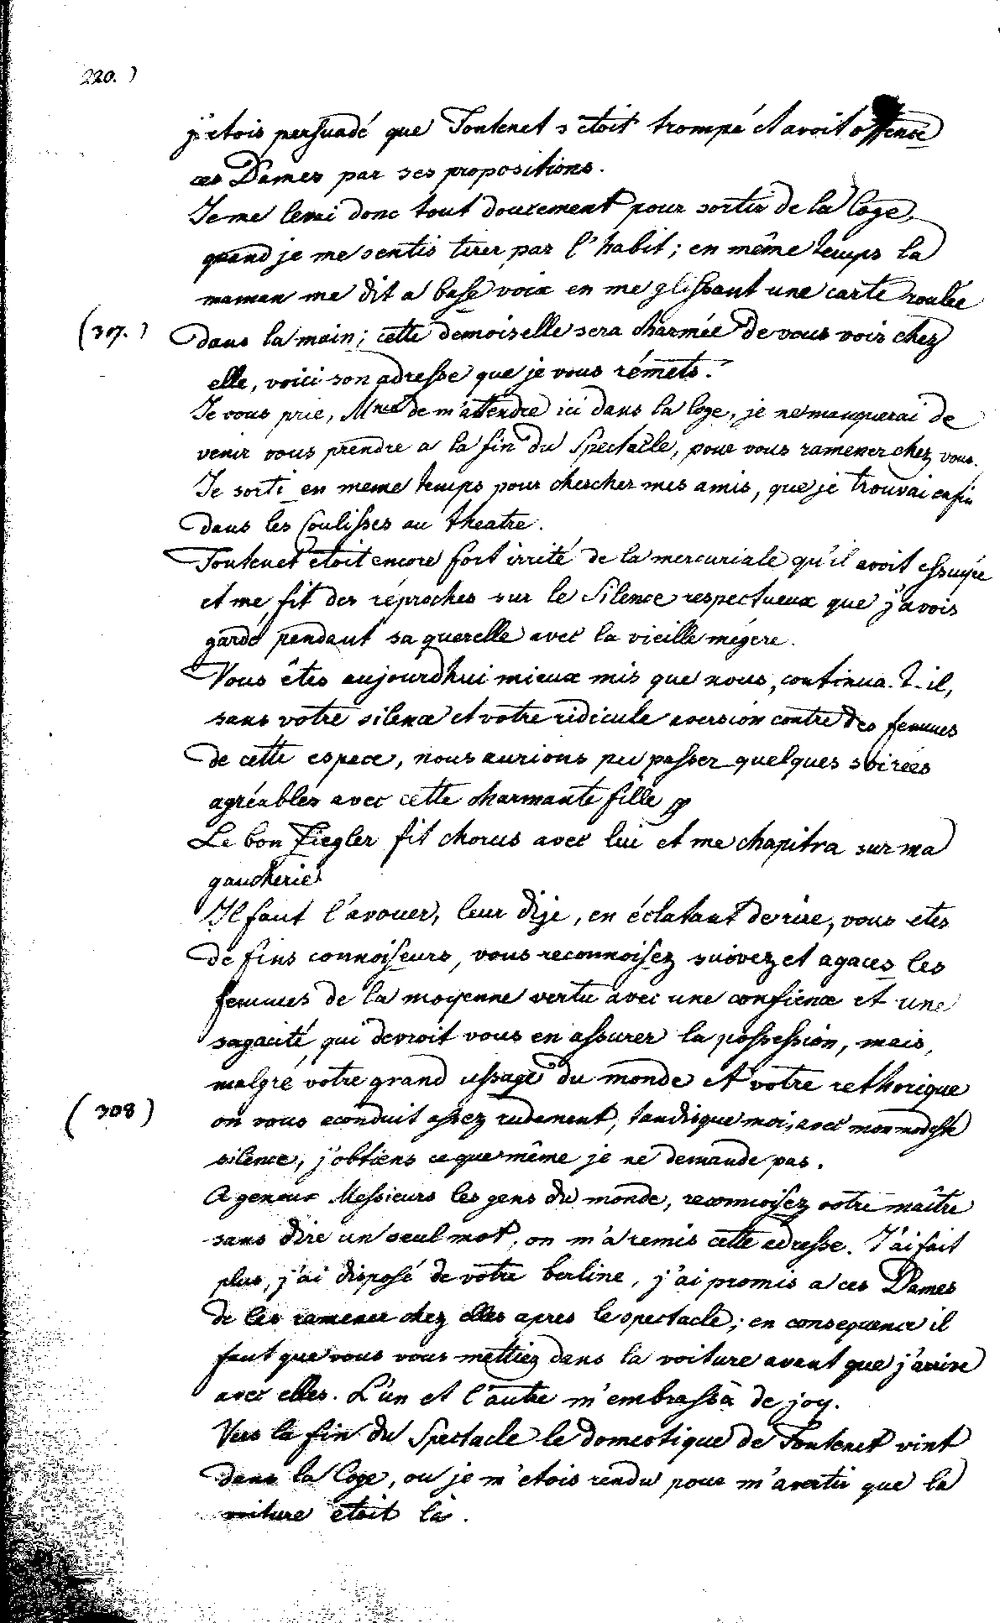 220. )
j'etois persuadé que Fontenet s'étoit trompé et avoit offencé
ces Dames par ses propositions.
Je me levai donc tout doucement pour sortir de la loge,
quand je me sentis tirer par l'habit; en même temps la
maman me dit a basse voix en me glissant une carte roulée
(307.) dans la main; cette demoiselle sera charmée de vous voir chez
elle, voici son adresse que je vous rémets.
Je vous prie, Mmes de m'attendre ici dans la loge, je ne manquerai de
venir vous prendre a la fin du Spectacle, pour vous ramener chez vous.
Je sorti en meme temps pour chercher mes amis, que je trouvai enfin
dans les Coulisses au theatre.
Fontenet étoit encore fort irrité de la mercuriale qu'il avoit essuyée
et me fit des réproches sur le Silence respectueux que j'avois
gardé pendant sa querelle avec la vieille mégere.
Vous êtes aujourdhui mieux mis que nous, continua-t-il,
sans votre silence et votre ridicule aversion contre des femmes
de cette espece, nous aurions pu passer quelques soirées
agréables avec cette charmante fille
Le bon Ziegler fit chorus avec lui et me chapitra sur ma
gaucherie.
Il faut l'avouer, leur dije, en éclatant de rire, vous etes
de fins connoiseurs, vous reconnoisez suivez et agaces les
femmes de la moyenne vertu avec une confience et une
sagacité, qui devroit vous en assurer la possession, mais,
malgré votre grand ussage du monde et votre rethorique
(308) on vous econduit assez rudement, tandisque moi, avec mon modeste
silence, j'obtiens ce que même je ne demande pas.
A genoux Messieurs les gens du monde, reconnoisez votre maître
sans dire un seul mot, on m'a remis cette adresse. J'ai fait
plus, j'ai disposé de votre berline, j'ai promis a ces Dames
de les ramener chez elles apres le spectacle; en consequence il
faut que vous vous mettiez dans la voiture avant que j'arrive
avec elles. L'un et l'autre m'embrassà de joy.
Vers la fin du Spectacle le domestique de Fontenet vint
dans la loge, ou je m'etois rendu pour m'avertir que la
voiture étoit là.